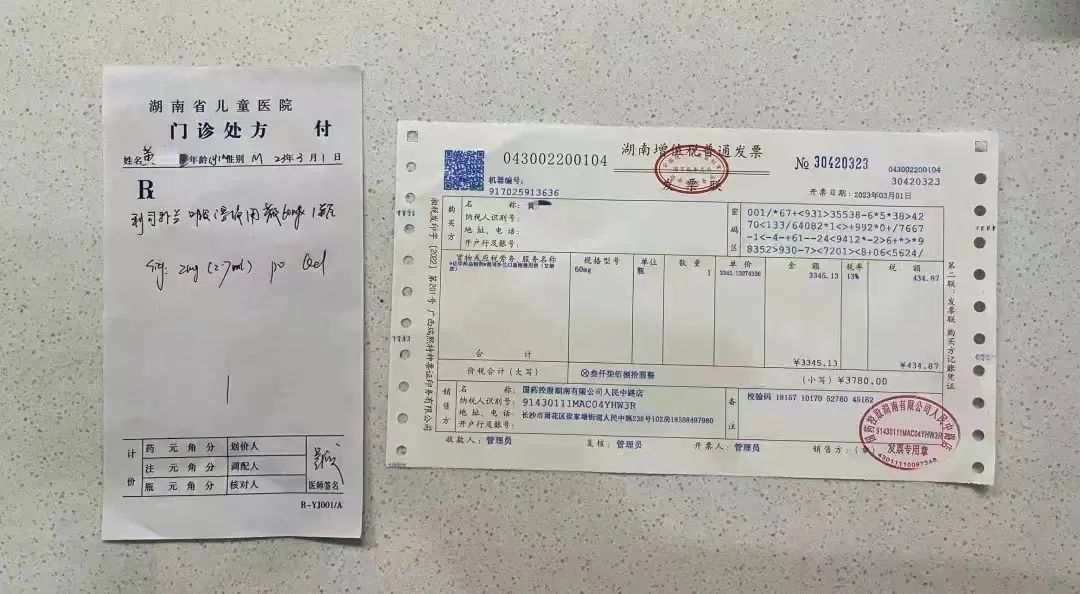 湖南省儿童医院
门诊处方 付
姓名 黄 年龄 性别 M 23年3月1日
R
利司扑兰口服溶液用散60mg 1瓶
2mg (2.7ml) po Qd
计价
药 元 角 分 划价人
注 元 角 分 调配人
瓶 元 角 分 核对人
医师签名
R-YJ001/A
043002200104
湖南增值税普通发票
发票联
№ 30420323
043002200104
30420323
机器编号:
917025913636
开票日期:2023年03月01日
购买方
名 称: 黄
纳税人识别号:
地 址、电 话:
开户行及账号:
密码区
001/*67+<931>35538-6*5*38>42
70<133/64082*1<>+992*0+/7667
-1<-4-+61--24<9412*-2>6+*>*9
8352>930-7>7201><8+06<5624/
货物或应税劳务、服务名称 规格型号 单位 数 量 单 价 金 额 税率 税 额
60mg 瓶 1 3345.13274336 3345.13 13% 434.87
合 计 ¥3345.13 ¥434.87
价税合计(大写) ⊗叁仟柒佰捌拾圆整 (小写)¥3780.00
销售方
名 称: 国药控股湖南有限公司人民中路店
纳税人识别号: 91430111MAC04YHW3R
地 址、电 话: 长沙市雨花区侯家塘街道人民中路238号102房18508497980
开户行及账号:
备注
校验码 18157 10170 52760 45162
收款人: 管理员 复核: 管理员 开票人: 管理员 销售方:(章)
第二联:发票联 购买方记账凭证
国药控股湖南有限公司人民中路店
91430111MAC04YHW3R
发票专用章